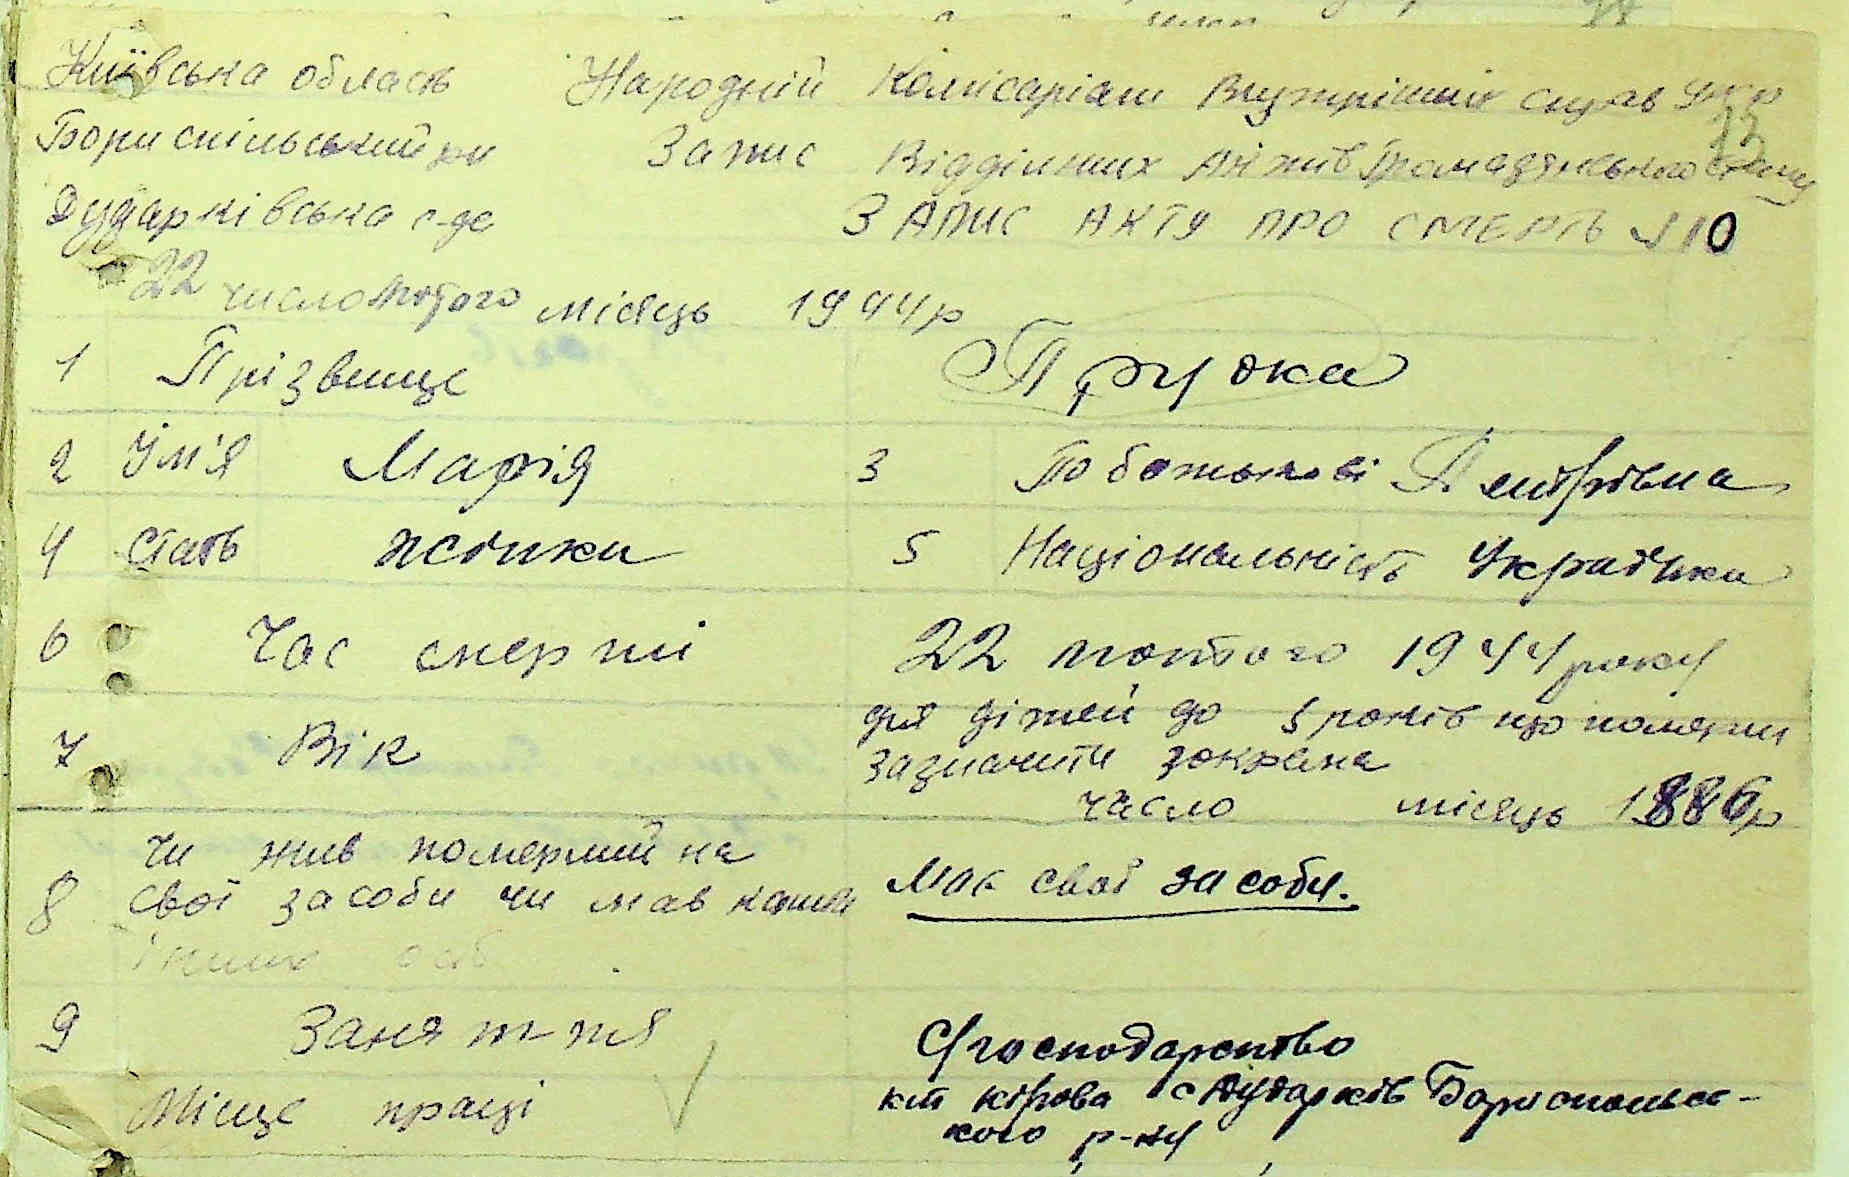 Київська область Народній Комісаріат Внутрішніх справ УРСР
Бориспільський р-н Запис Відділ інших Актів Громадянського стану
Дударківська с-да ЗАПИС АКТУ ПРО СМЕРТЬ №10
22 число лютого місяць 1944р
1 Прізвище Пружка
2 Ім'я Марія 3 По батькові Дмитрівна
4 Стать жінка 5 Національність Українка
6 Час смерті 22 лютого 1944 року
7 Вік для дітей до 5 років що померли
зазначити зокрема
число місяць 1886р
8 Чи жив померший на
свої засоби чи мав кошти Має свої засоби.
інших осіб
9 Заняття С/господарство
Місце праці к-п Кірова с Дударків Бориспольсь-
кого р-ну